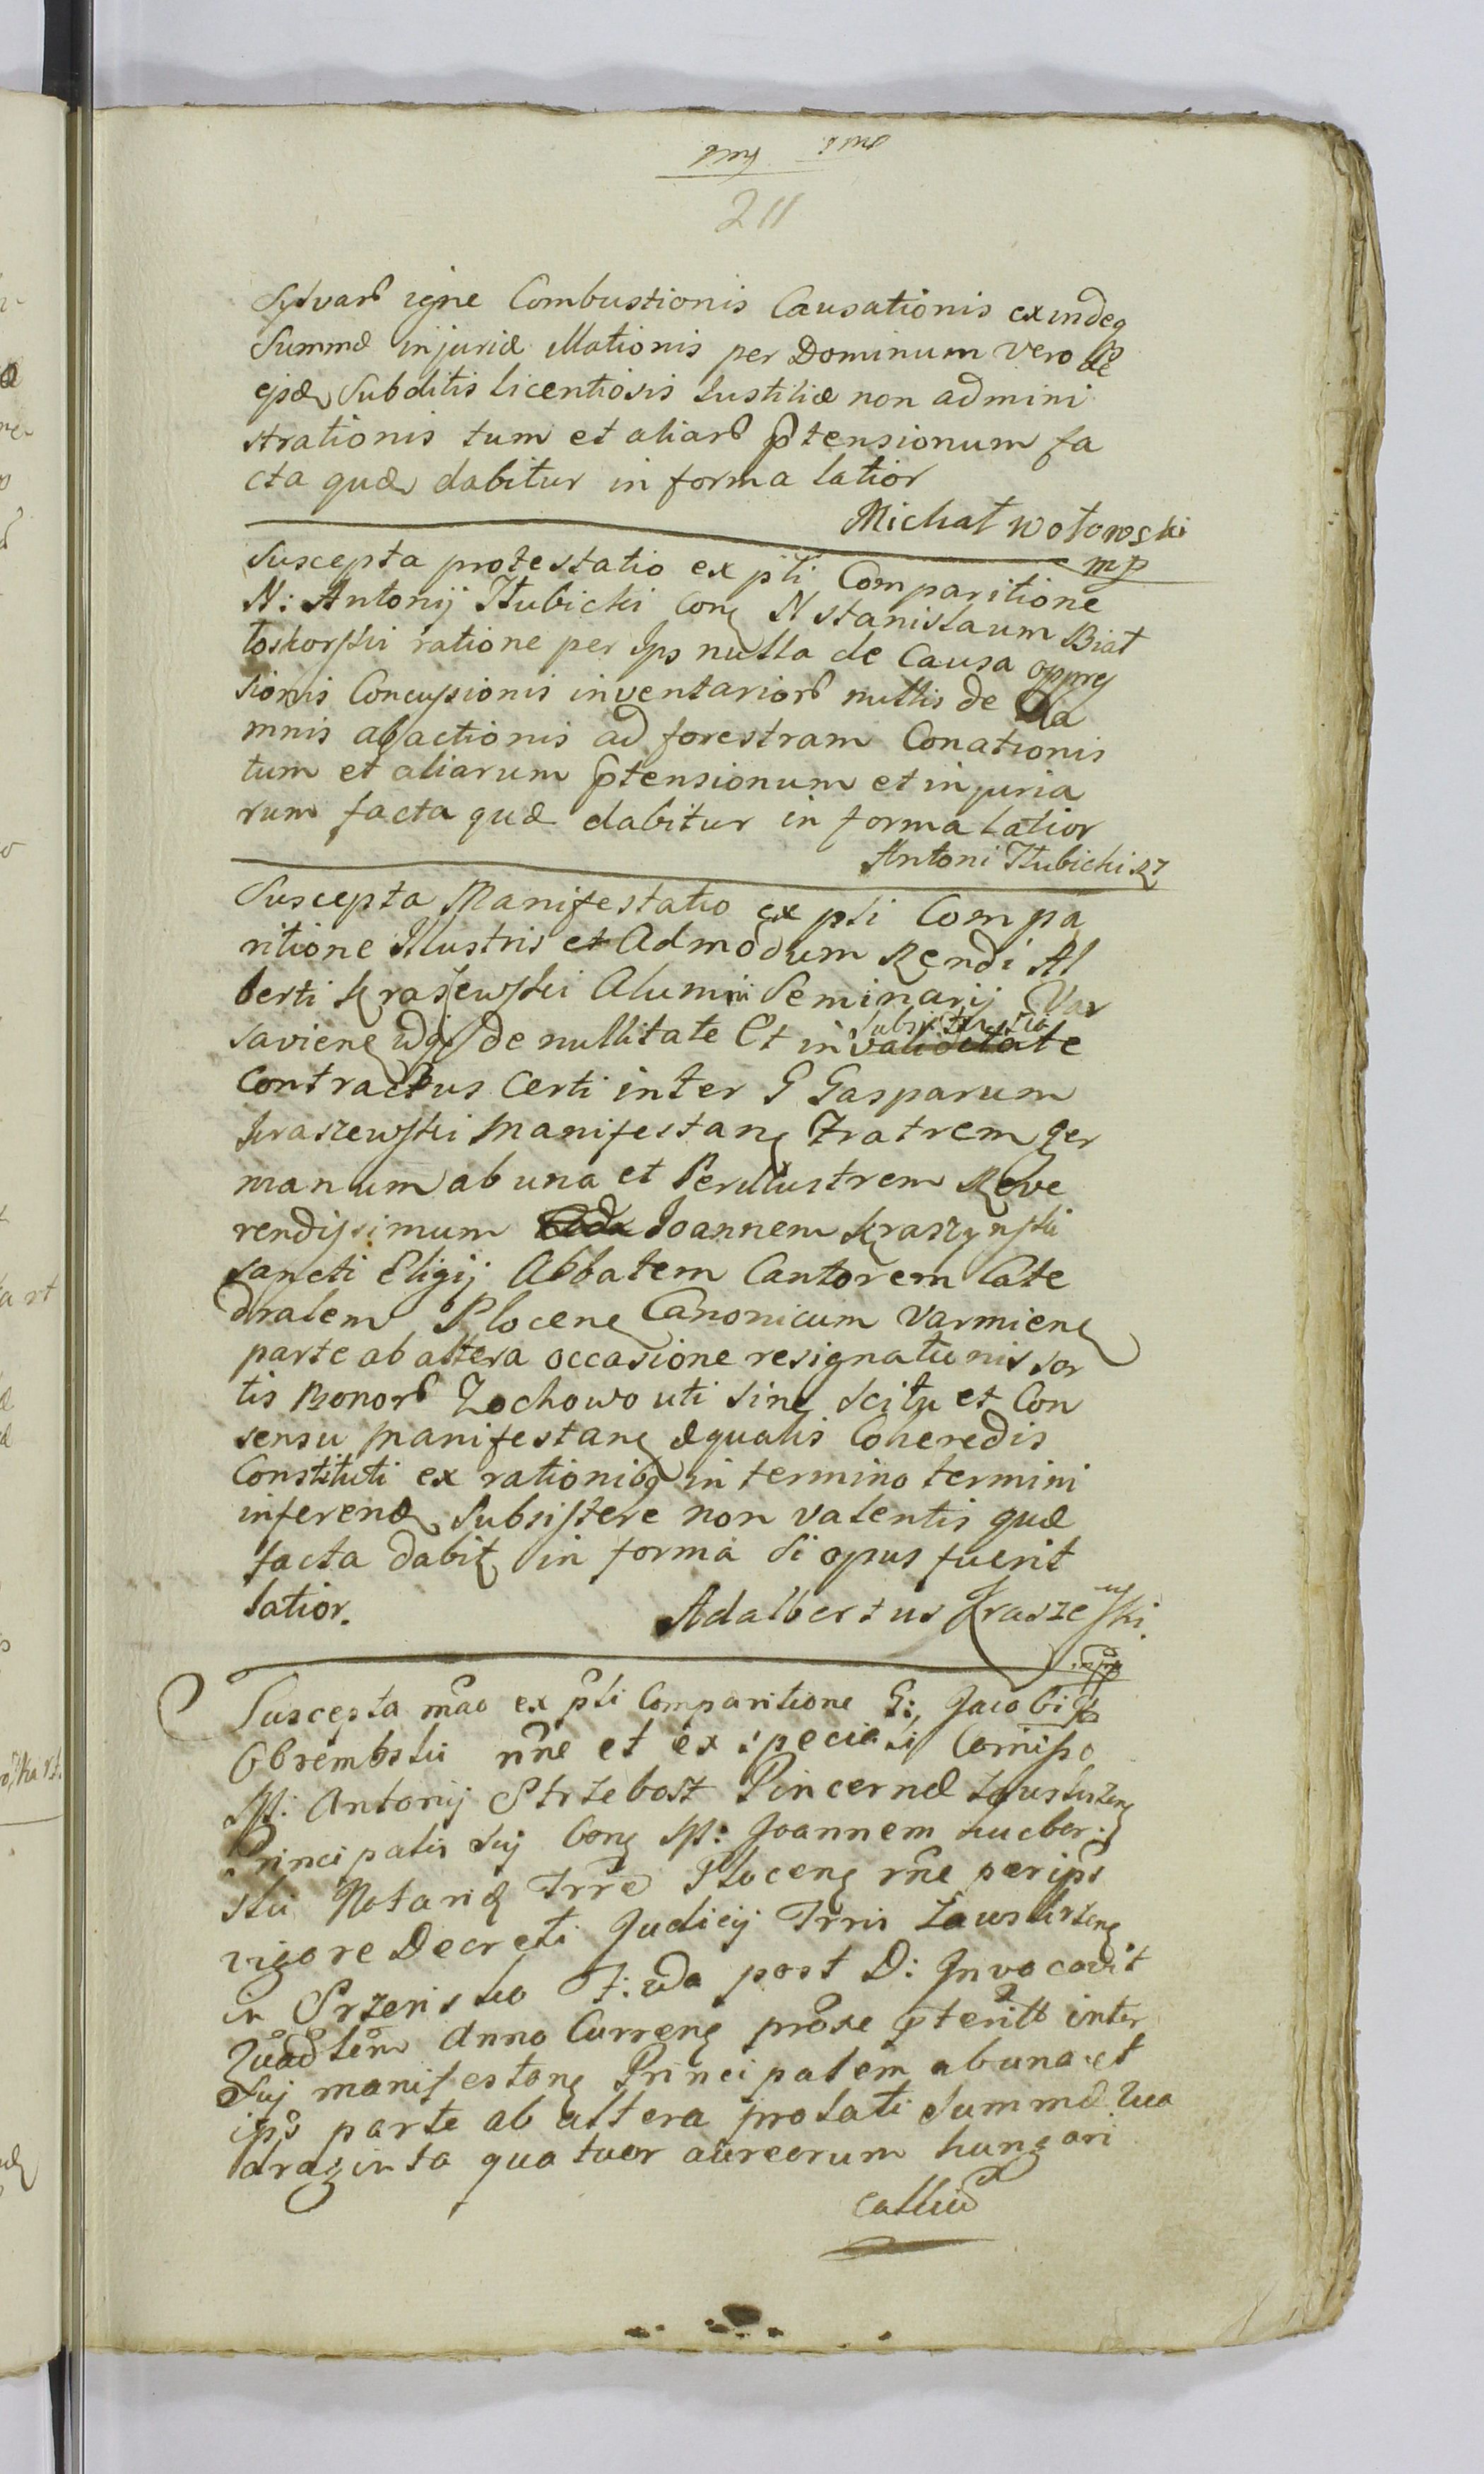 211
Sylvarũ igne Combustionis Causationis exindeq
Summæ injuriæ illationis per Dominum vero de
ejsdæ Subditis licentiosis Iustitiæ non admini
strationis tum et aliarũ p̃tensionum fa
cta quæ dabitur in forma latior
Michał Wołowski
mp
Suscepta protestatio ex p̃ti Comparitione
N: Antonij Hubicki Con̨ N Stanislaum Biał
łoskorski ratione per Ips nulla de Causa oppres
sionis Concussionis inventariorũ nullis de Da
mnis abactionis ad forestram Conationis
tum et aliarum p̃tensionum et injuria
rum facta quæ dabitur in forma latior
Antoni Hubicki
Suscepta Manifestatio ex pti Compa
ritione Illustris et Admodum Rendi Al
berti Kraszewski Alumni Seminarij Var
savien̨ de nullitate Et in validitate
subsistentia
Contractus Certi inter G Gasparum
Kraszewski Manifestan̨ Fratrem ger
manum ab una et Perillustrem Reve
rendissimum Joannem Kraszynski
Sancti Eligij Abbatem Cantorem Cate
dralem Plocen̨ Canonicum Varmien̨
parte ab altera occasione resignationis sor
tis Bonorũ Zochowo uti sine scitu et Con
sensu Manifestan̨ æqualis Coheredis
Constituti ex rationibq in termino termini
inferend̨ Subsistere non valentis quæ
facta dabit̨ in forma si opus fuerit
latior.
Adalbertus Kraszewski.
mp
Suscepta m̃ao ex p̃ti Comparitione G: Jacobi
Obrembski nñe et ex speciali Comisso
Sp: Antonij Strzebosz Pincernæ Zauskrzen̨
Principalis sui Con̨ Sp: Joannem
ski Notariũ Trr̃æ Plocen̨ rñe per ips̃
vigore Decreti Judicij Trris Zauskrzen̨
in Srzensko F: 2da post D: Invocavit
Quad̃lem̃ Anno Curren̨ prõxe p̃terit inter
Suj manifestan̨ Principalem ab una et
ips̃ parte ab altera prolati Summæ qua
draginta quatuor aureorum hungari
calium